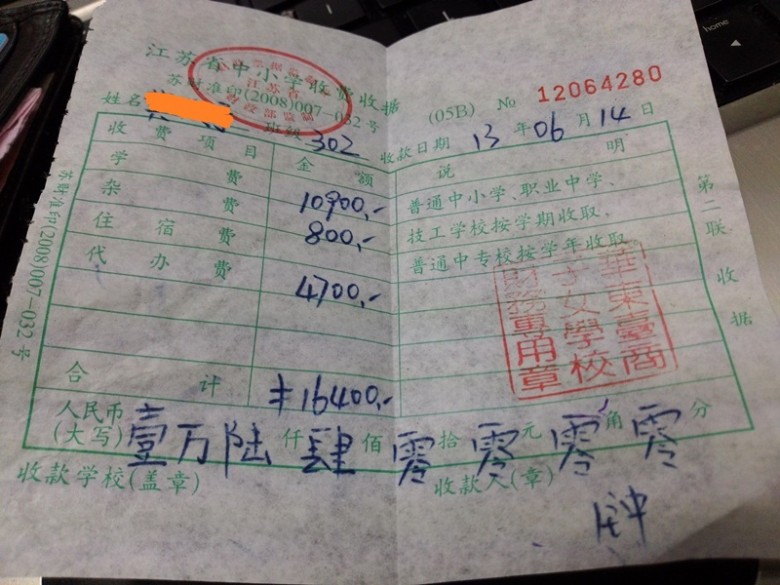 江苏省中小学收费收据
苏财准印(2008)007-032号
(05B) No 12064280
姓名 班级 302 收款日期 13 年 06 月 14 日
收费项目 金额 说明
学费 10900,-
杂费 800,-
住宿费
代办费 4700,-
普通中小学、职业中学、
技工学校按学期收取,
普通中专校按学年收取
合计 16400,-
人民币
(大写) 壹万陆仟肆佰零拾零元零角零分
收款学校(盖章) 收款人(章)
第二联 收据
苏财准印(2008)007-032号
華東臺商
子女學校
財務專用章
home